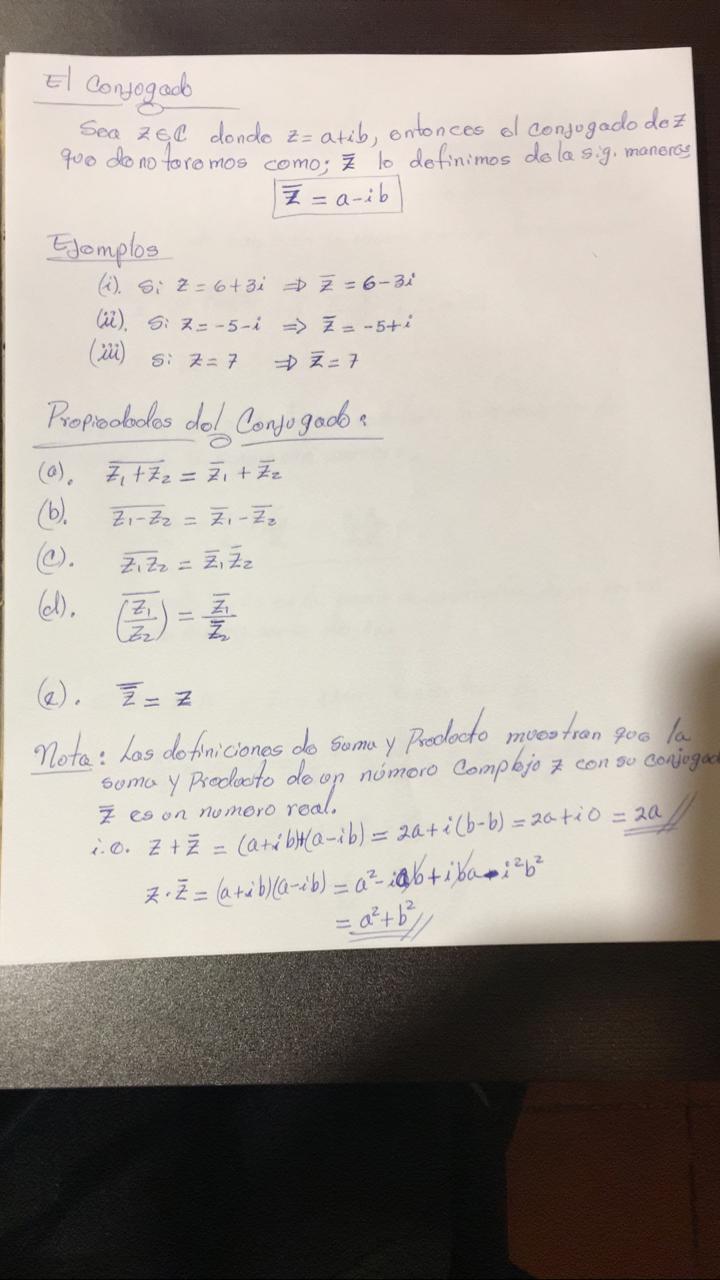 El Conjugado
Sea z ∈ ℂ donde z = a+ib, entonces el conjugado de z
que denotaremos como; z̄ lo definimos de la sig. manera:
z̄ = a-ib
Ejemplos
(i). Si z = 6+3i ⇒ z̄ = 6-3i
(ii). Si z = -5-i ⇒ z̄ = -5+i
(iii) Si z = 7 ⇒ z̄ = 7
Propiedades del Conjugado:
(a). \overline{z₁+z₂} = z̄₁ + z̄₂
(b). \overline{z₁-z₂} = z̄₁ - z̄₂
(c). \overline{z₁z₂} = z̄₁ z̄₂
(d). \overline{(z₁/z₂)} = z̄₁/z̄₂
(e). \overline{z̄} = z
Nota: Las definiciones de Suma y Producto muestran que la
suma y Producto de un número Complejo z con su conjugad
z̄ es un numero real.
i.e. z + z̄ = (a+ib)+(a-ib) = 2a+i(b-b) = 2a+i0 = 2a //
z · z̄ = (a+ib)(a-ib) = a²-iab+iba-i²b²
= a²+b² //